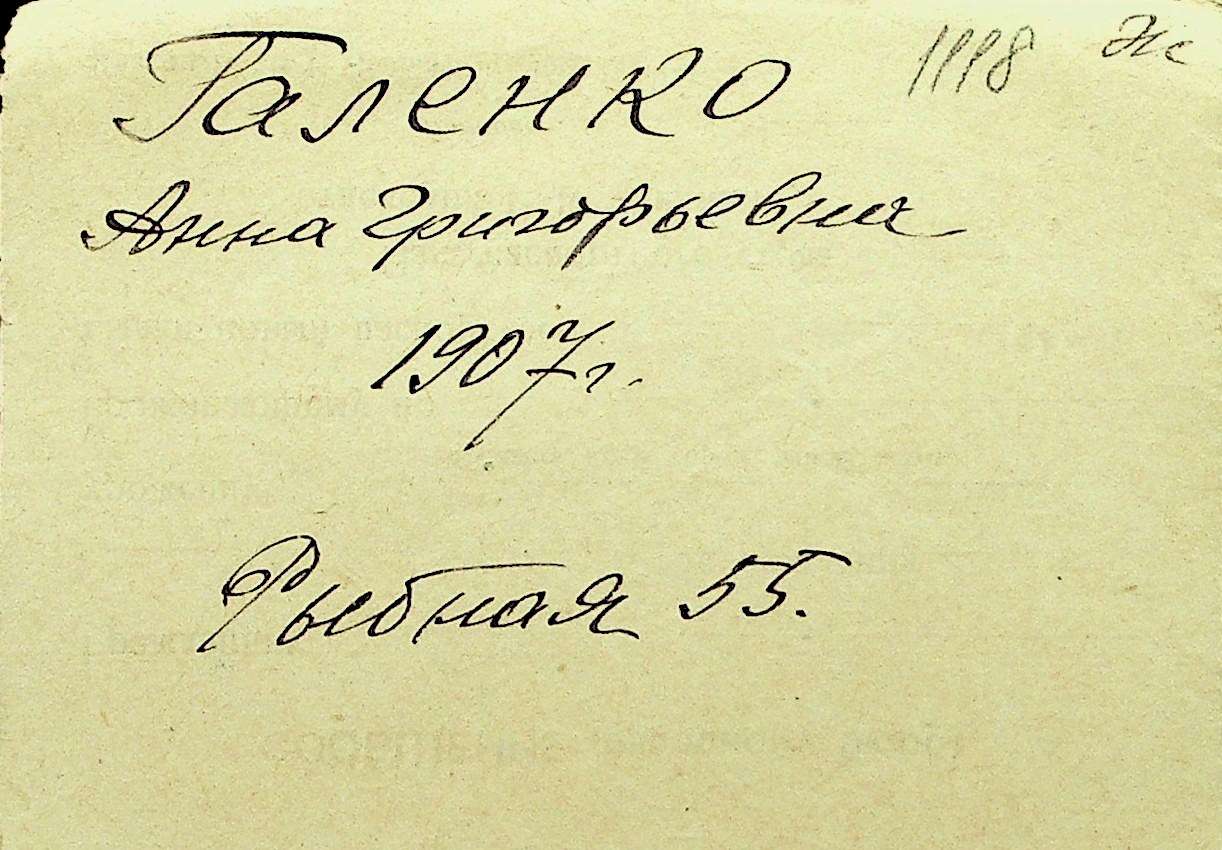 1118 Ж
Галенко
Анна Григорьевна
1907 г.
Рыбная 55.